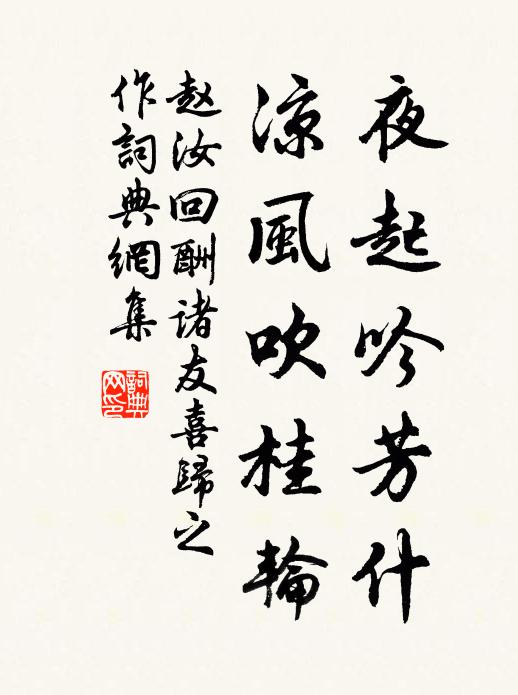 夜起吟芳什
凉風吹桂輪
赵汝回酬诸友喜歸之
作詞典網集
詞典网印